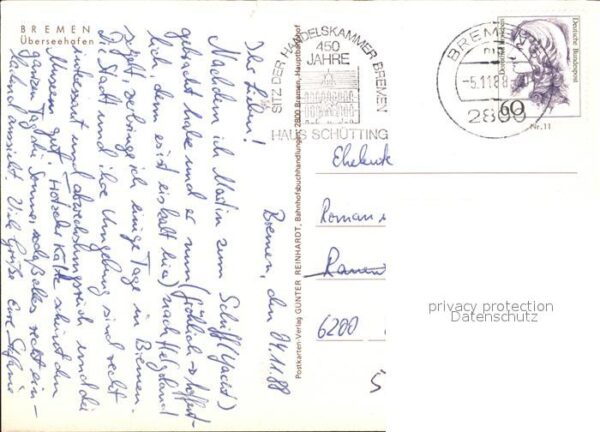 BREMEN
Überseehafen
Bremen, den 04.11.88
Ihr Lieben!
Nachdem ich Martin zum Schiff (Yacht)
gebracht habe und er nun (fröhlich so hoffent-
lich, denn es ist eiskalt hier) nach Helgoland
segelt verbringe ich einige Tage in Bremen.
Die Stadt und ihre Umgebung sind recht
interessant und abwechslungsreich und die
Museen gut. Trotz der Kälte scheint den
ganzen Tag die Sonne, sodaß alles recht ein-
ladend aussieht. Viele Grüße Eure Stefanie
Postkarten-Verlag GÜNTER REINHARDT, Bahnhofsbuchhandlungen, 2800 Bremen, Hauptbahnhof
SITZ DER HANDELSKAMMER BREMEN
450
JAHRE
HAUS SCHÜTTING
BREMEN
-5.11.88
2800
Deutsche Bundespost
60
Nr. 11
Eheleute
Roman
6200
privacy protection
Datenschutz